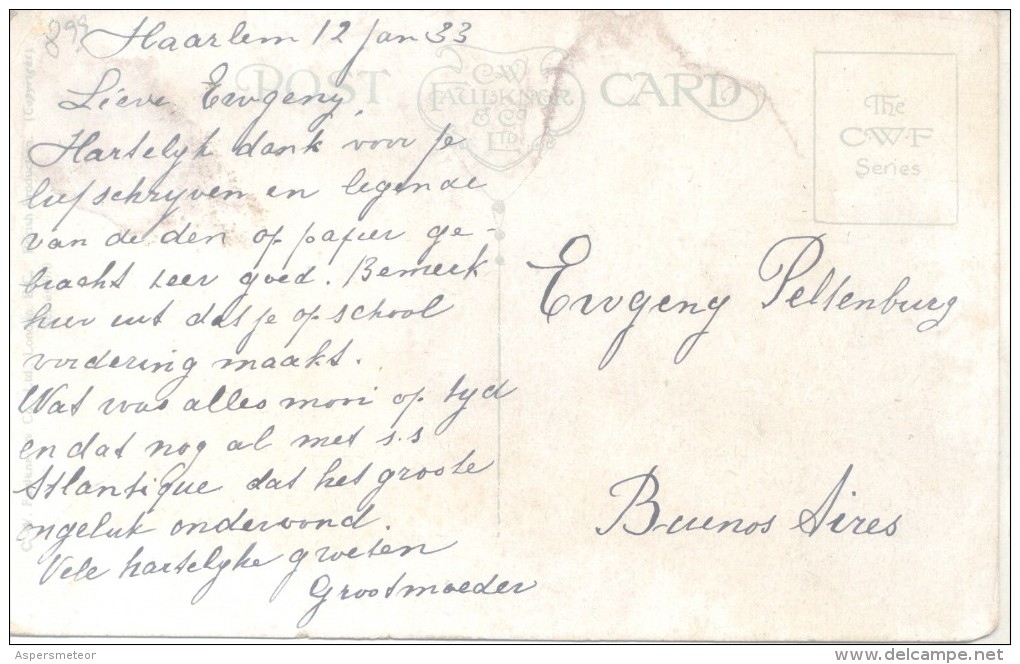 899
Haarlem 12 Jan 33
POST CARD
C.W.
FAULKNER
& Co
LTD.
The
C.W.F
Series
Lieve Ewgeny,
Hartelyk dank voor je
lief schryven en legende
van de den op papier ge-
bracht zeer goed. Bemerk
hier uit dat je op school
vordering maakt.
Wat was alles mooi op tyd
en dat nog al met s.s
Atlantique dat het groote
ongeluk ondervond.
Vele hartelyke groeten
Grootmoeder
Ewgeny Peltenburg
Buenos Aires
Aspersmeteor
delcampe.net